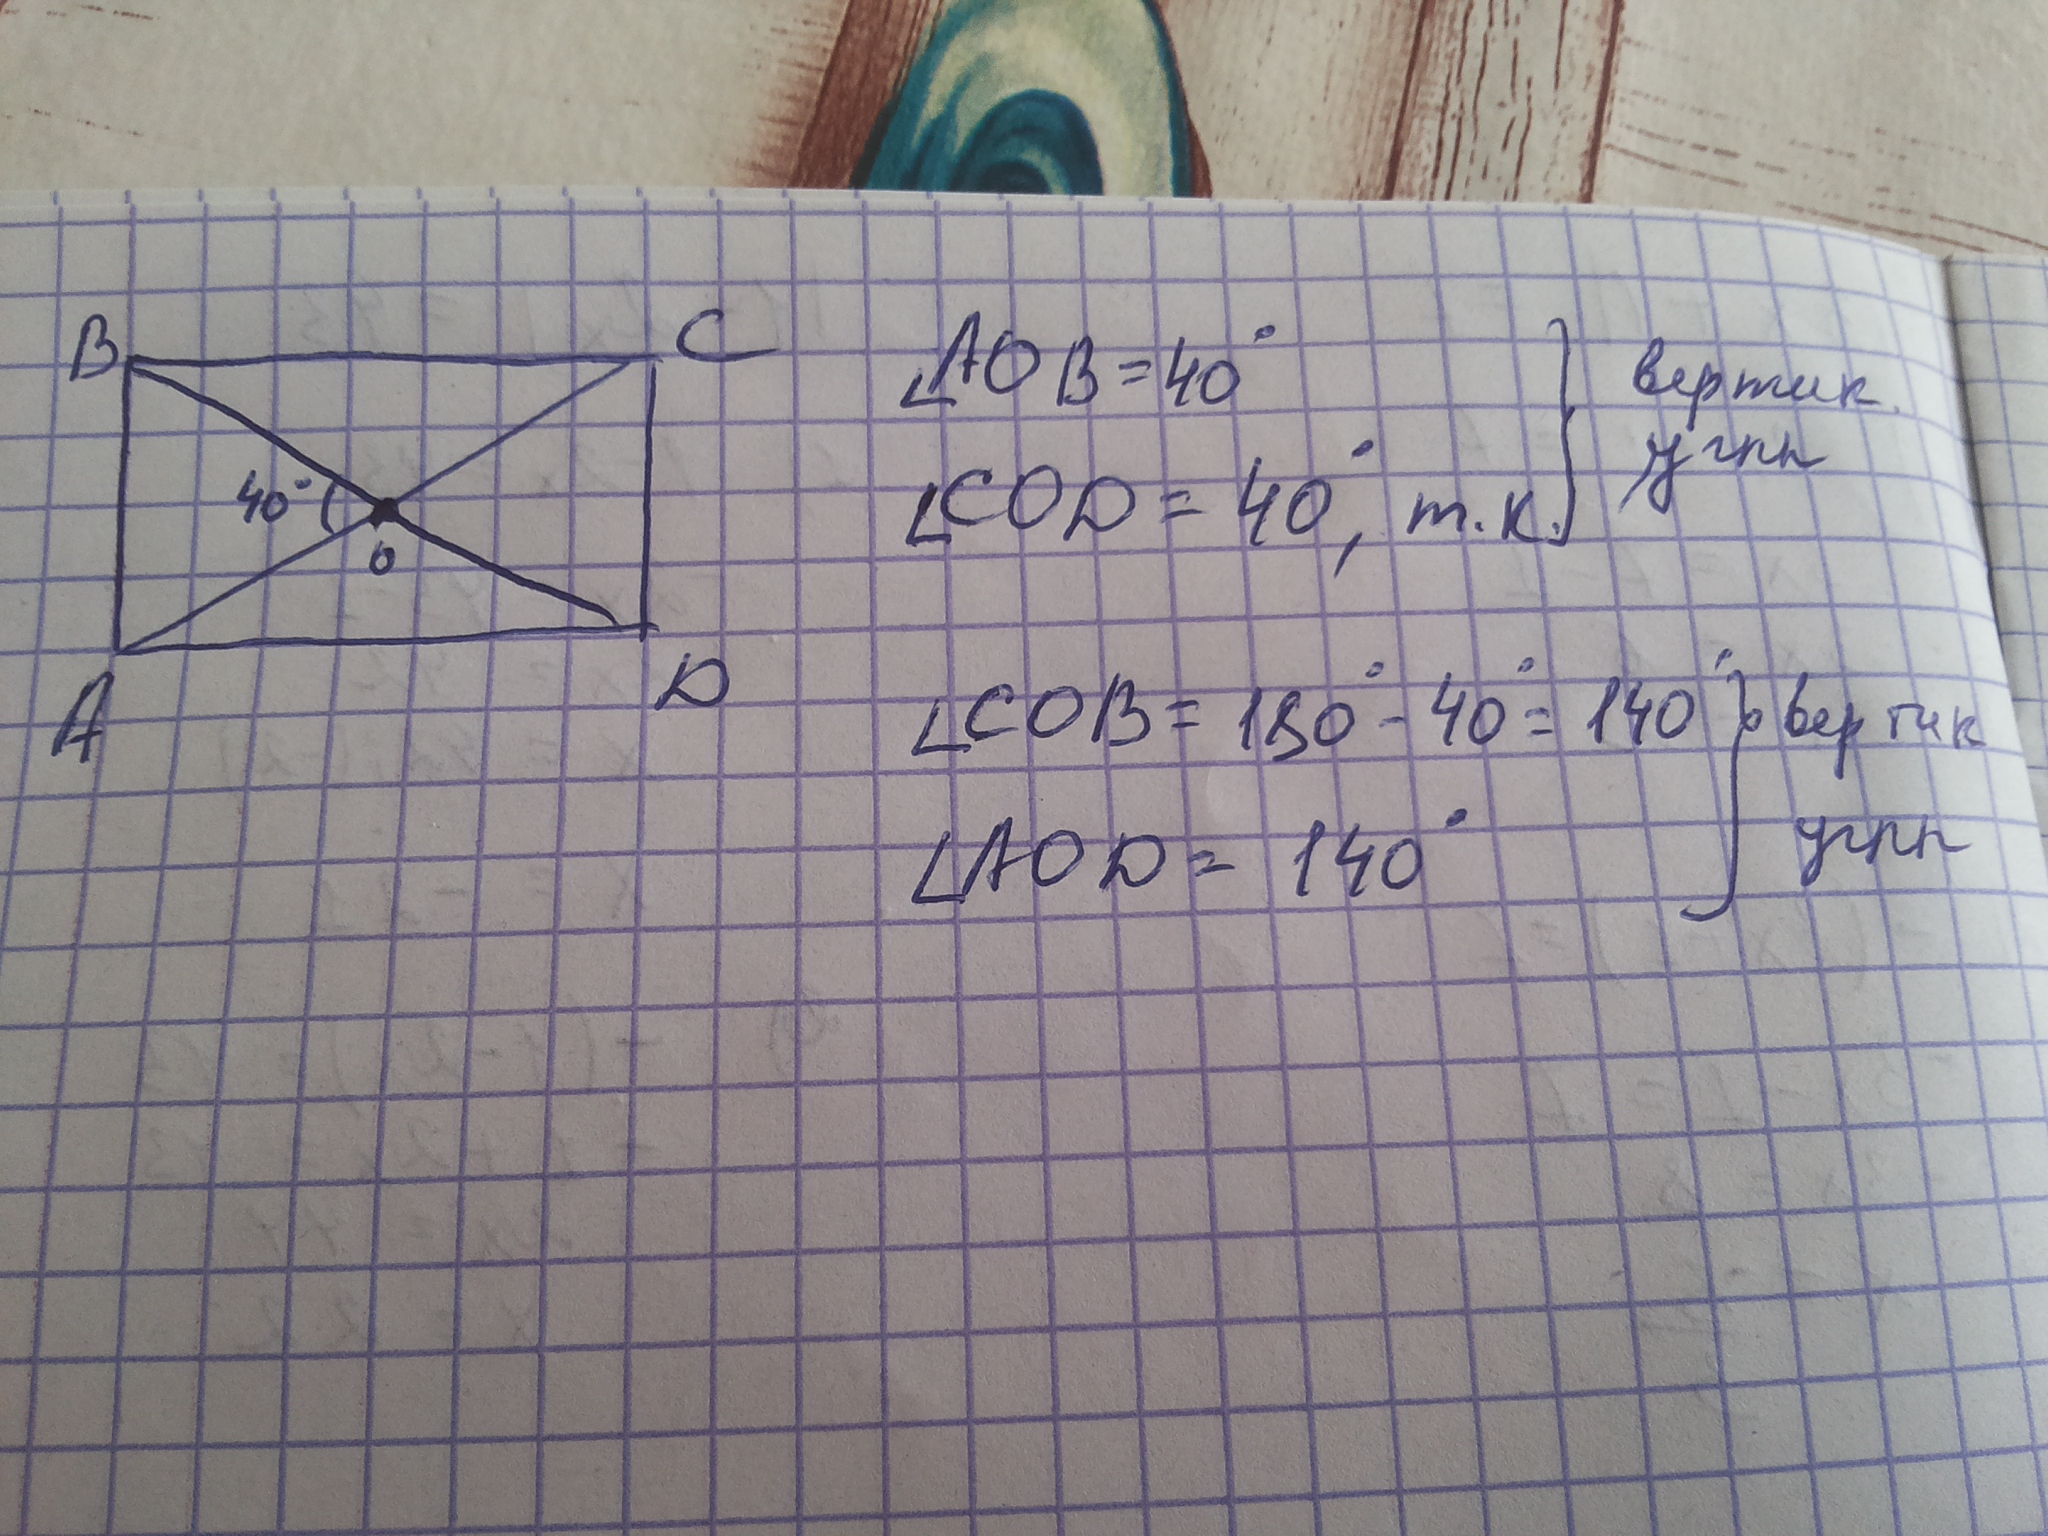 B
C
40°
O
A
D
∠AOB=40°
∠COD=40°, т.к.
вертик.
углы
∠COB=180°-40°=140°
∠AOD=140°
вертик
углы